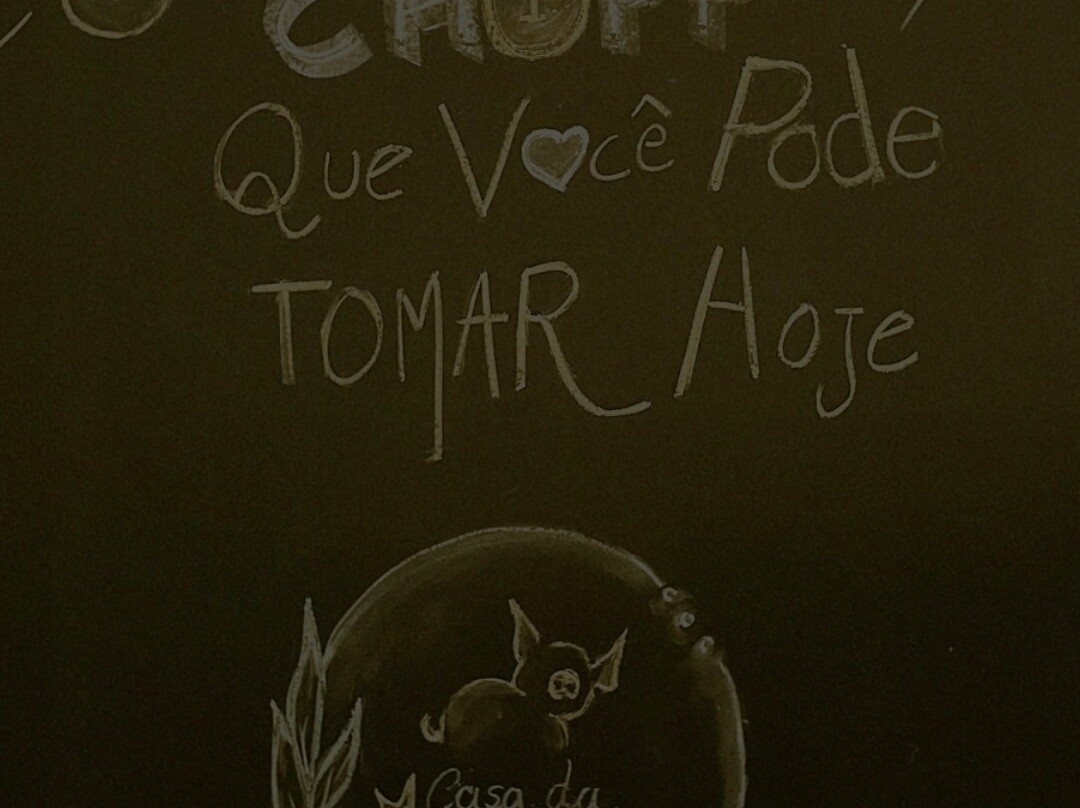 CHOPP
Que Você Pode
TOMAR Hoje
Casa da